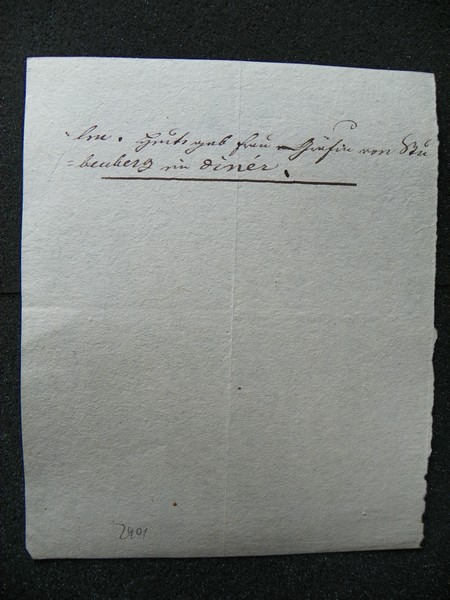 len. Heute gab Frau Gräfin von Stu
=benberg ein dinér.
2401